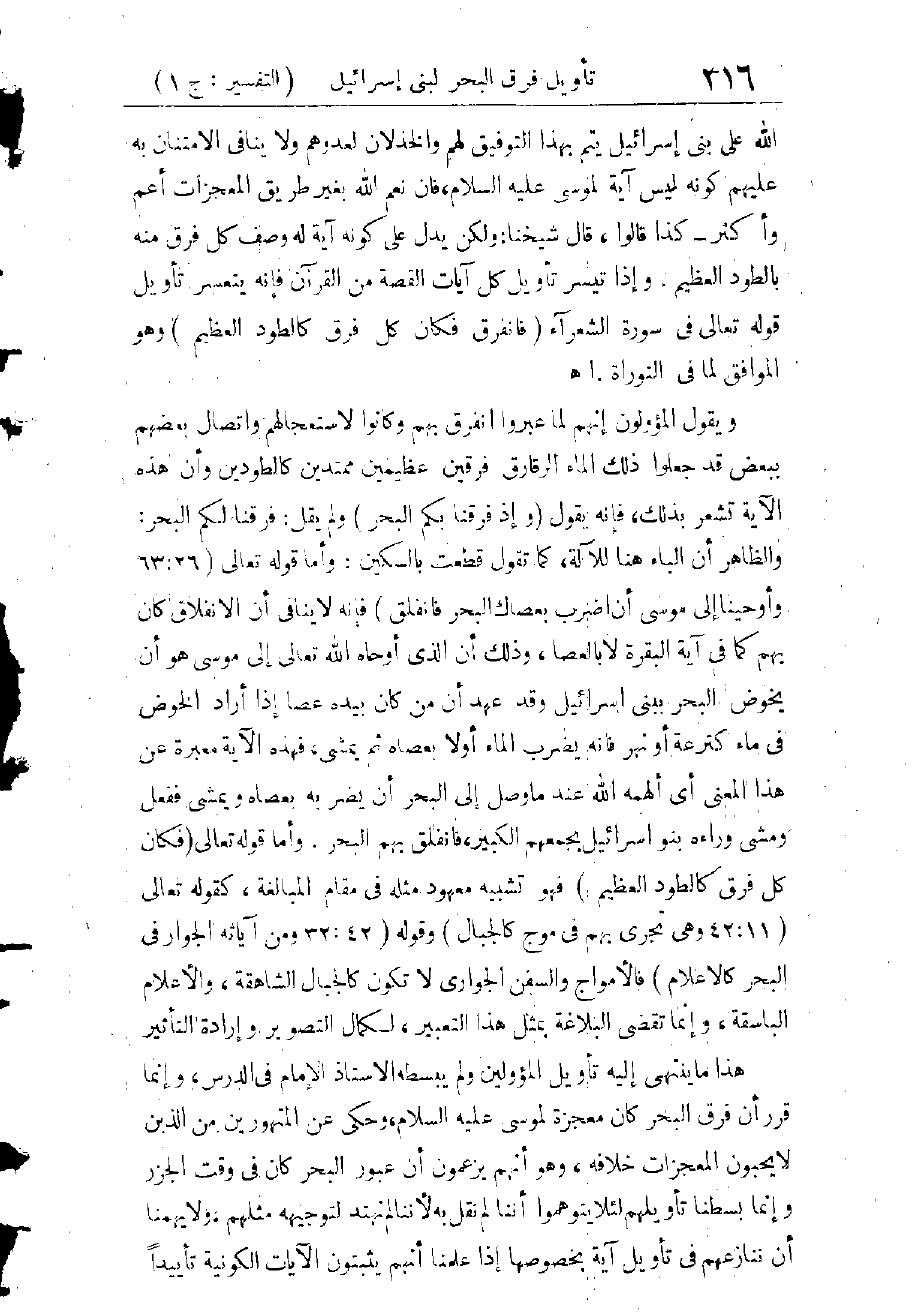 ٣١٦ تأويل فرق البحر لبنى إسرائيل (التفسير : ج ١)
الله على بنى إسرائيل يتم بهذا التوفيق لهم والخذلان لعدوهم ولا ينافى الامتنان به
عليهم كونه ليس آية لموسى عليه السلام، فان نعم الله بغير طريق المعجزات أعم
وأكثر ــ كذا قالوا ، قال شيخنا: ولكن يدل على كونه آية له وصف كل فرق منه
بالطود العظيم . وإذا تيسر تأويل كل آيات القصة من القرآن فإنه يتعسر تأويل
قوله تعالى فى سورة الشعرآء ( فانفرق فكان كل فرق كالطود العظيم ) وهو
الموافق لما فى التوراة . ا ه
ويقول المؤولون إنهم لما عبروا انفرق بهم وكانوا لاستعجالهم واتصال بعضهم
ببعض قد جعلوا ذلك الماء الرقارق فرقين عظيمين ممتدين كالطودين وأن هذه
الآية تشعر بذلك، فإنه يقول (وإذ فرقنا بكم البحر ) ولم يقل: فرقنا لكم البحر:
والظاهر أن الباء هنا للآلة، كما تقول قطعت بالسكين : وأما قوله تعالى ( ٢٦:٦٣
وأوحينا إلى موسى أن اضرب بعصاك البحر فانفلق ) فإنه لا ينافى أن الانفلاق كان
بهم كما فى آية البقرة لا بالعصا ، وذلك أن الذى أوحاه الله تعالى إلى موسى هو أن
يخوض البحر ببنى اسرائيل وقد عهد أن من كان بيده عصا إذا أراد الخوض
فى ماء كترعة أو نهر فانه يضرب الماء أولا بعصاه ثم يمشى، فهذه الآية معبرة عن
هذا المعنى أى ألهمه الله عند ما وصل إلى البحر أن يضربه بعصاه ويمشى ففعل
ومشى وراءه بنو اسرائيل بجمعهم الكبير، فانفلق بهم البحر . وأما قوله تعالى (فكان
كل فرق كالطود العظيم ) فهو تشبيه معهود مثله فى مقام المبالغة ، كقوله تعالى
( ١١:٤٢ وهى تجرى بهم فى موج كالجبال ) وقوله ( ٤٢:٣٢ ومن آياته الجوار فى
البحر كالاعلام ) فالأمواج والسفن الجوارى لا تكون كالجبال الشاهقة ، والأعلام
الباسقة ، وإنما تقضى البلاغة بمثل هذا التعبير ، لكمال التصوير وإرادة التأثير
هذا ما ينتهى إليه تأويل المؤولين ولم يبسطه الاستاذ الإمام فى الدرس ، وإنما
قرر أن فرق البحر كان معجزة لموسى عليه السلام، وحكى عن المتهورين من الذين
لا يحبون المعجزات خلافه ، وهو أنهم يزعمون أن عبور البحر كان فى وقت الجزر
وإنما بسطنا تأويلهم لئلا يتوهموا أننا لم نقل به لأننا لم نهتد لتوجيهه مثلهم ، ولا يهمنا
أن ننازعهم فى تأويل آية بخصوصها إذا علمنا أنهم يثبتون الآيات الكونية تأييداً